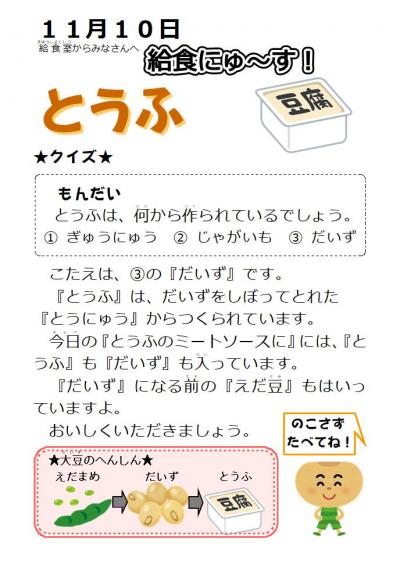 11月10日
給食室からみなさんへ
給食にゅ～す！
とうふ
豆腐
★クイズ★
もんだい
とうふは、何から作られているでしょう。
① ぎゅうにゅう ② じゃがいも ③ だいず
こたえは、③の『だいず』です。
『とうふ』は、だいずをしぼってとれた
『とうにゅう』からつくられています。
今日の『とうふのミートソースに』には、『と
うふ』も『だいず』も入っています。
『だいず』になる前の『えだ豆』もはいっ
ていますよ。
おいしくいただきましょう。
のこさず
たべてね！
★大豆のへんしん★
えだまめ だいず とうふ
豆腐